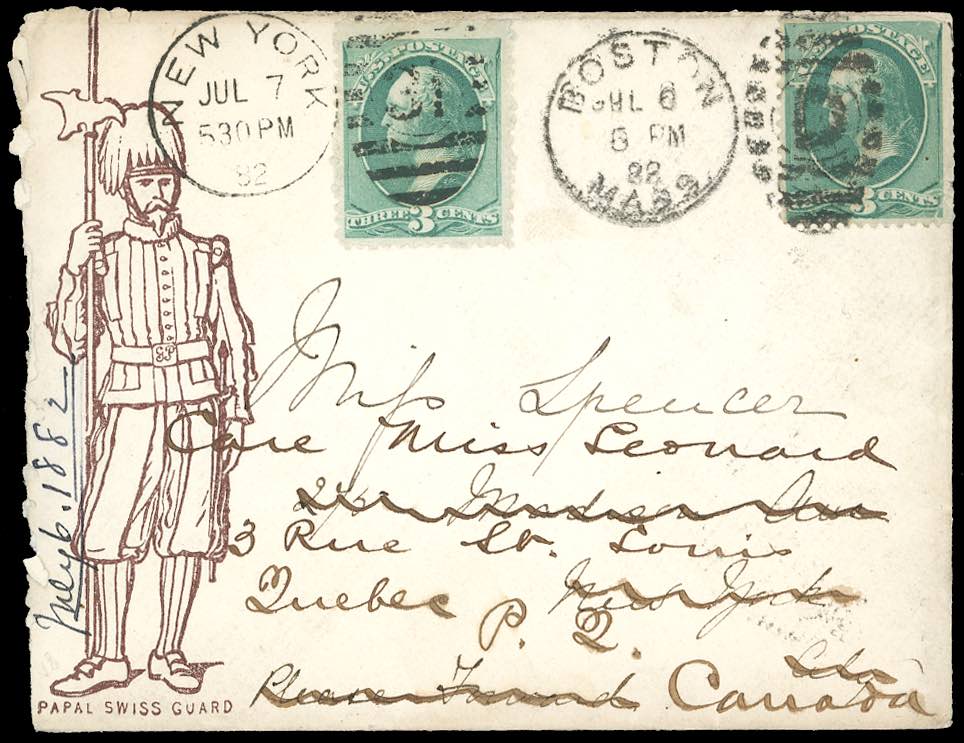 NEW YORK
JUL 7
530PM
82
U.S. POSTAGE
THREE 3 CENTS
BOSTON
JUL 6
6 PM
82
MASS.
U.S. POSTAGE
3 CENTS
GP
July 6. 1882
Miss Spencer
Care Miss Leonard
Madison Ave
3 Rue St. Louis
Quebec New York
P. Q.
Please Forward Canada
PAPAL SWISS GUARD